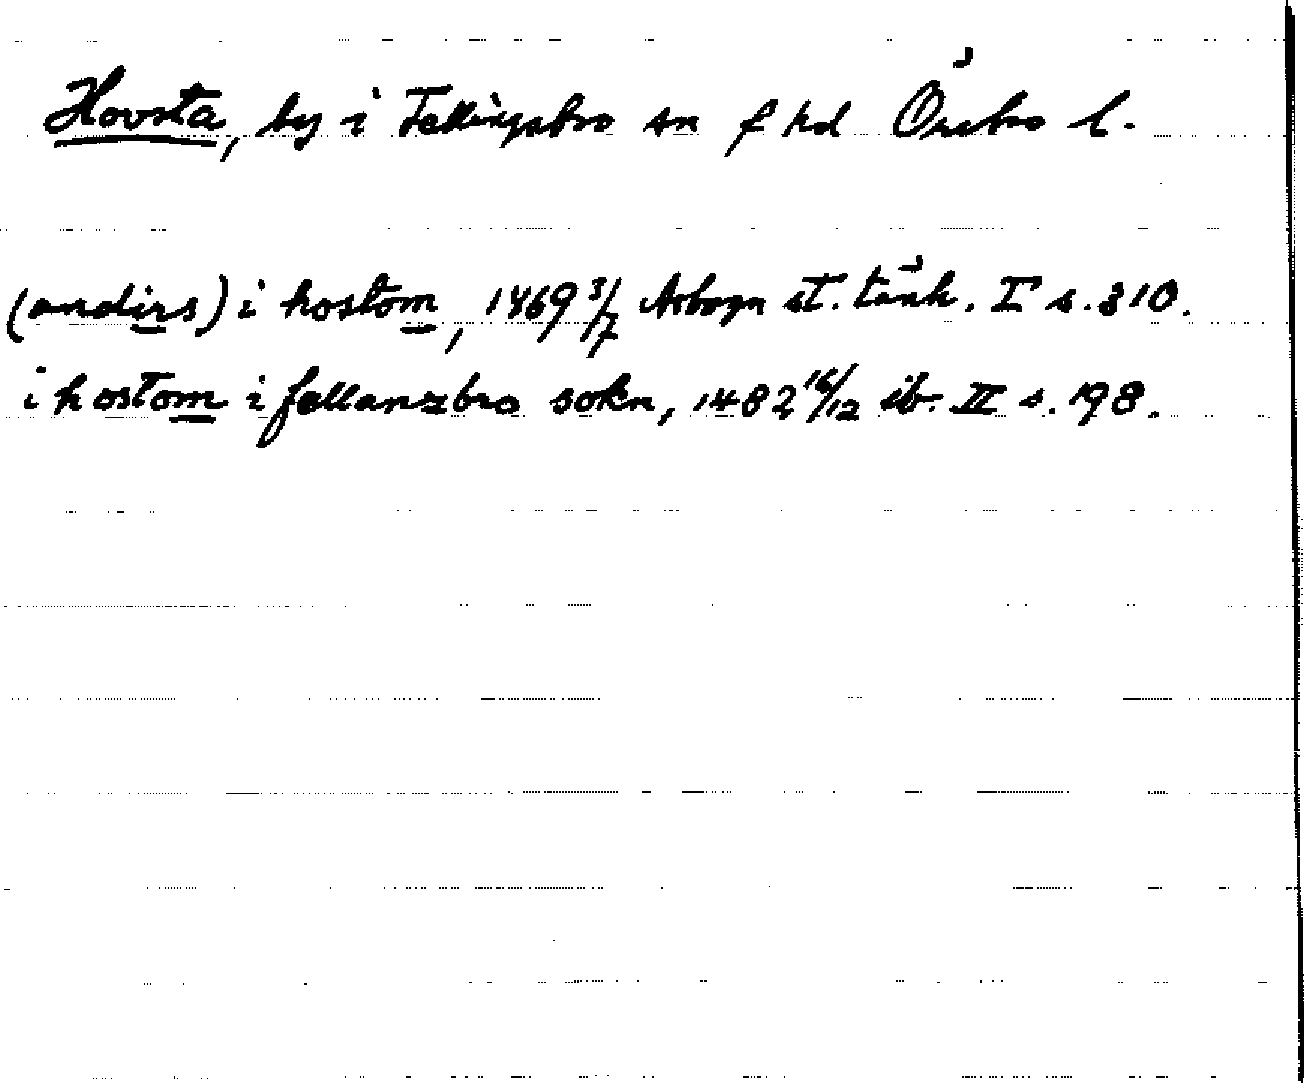 Hovsta, by i Fellingsbro sn f hd Örebro l.
(andirs) i hostom, 1469 3/7 Arboga st. tänk. I s. 310.
i hostom i fellansbro sokn, 1482 16/12 ib. II s. 198.